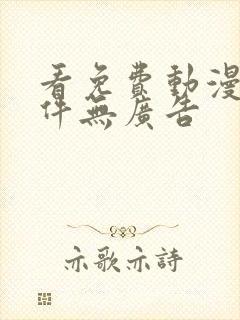 看免費動漫
件無廣告
亦歌亦詩